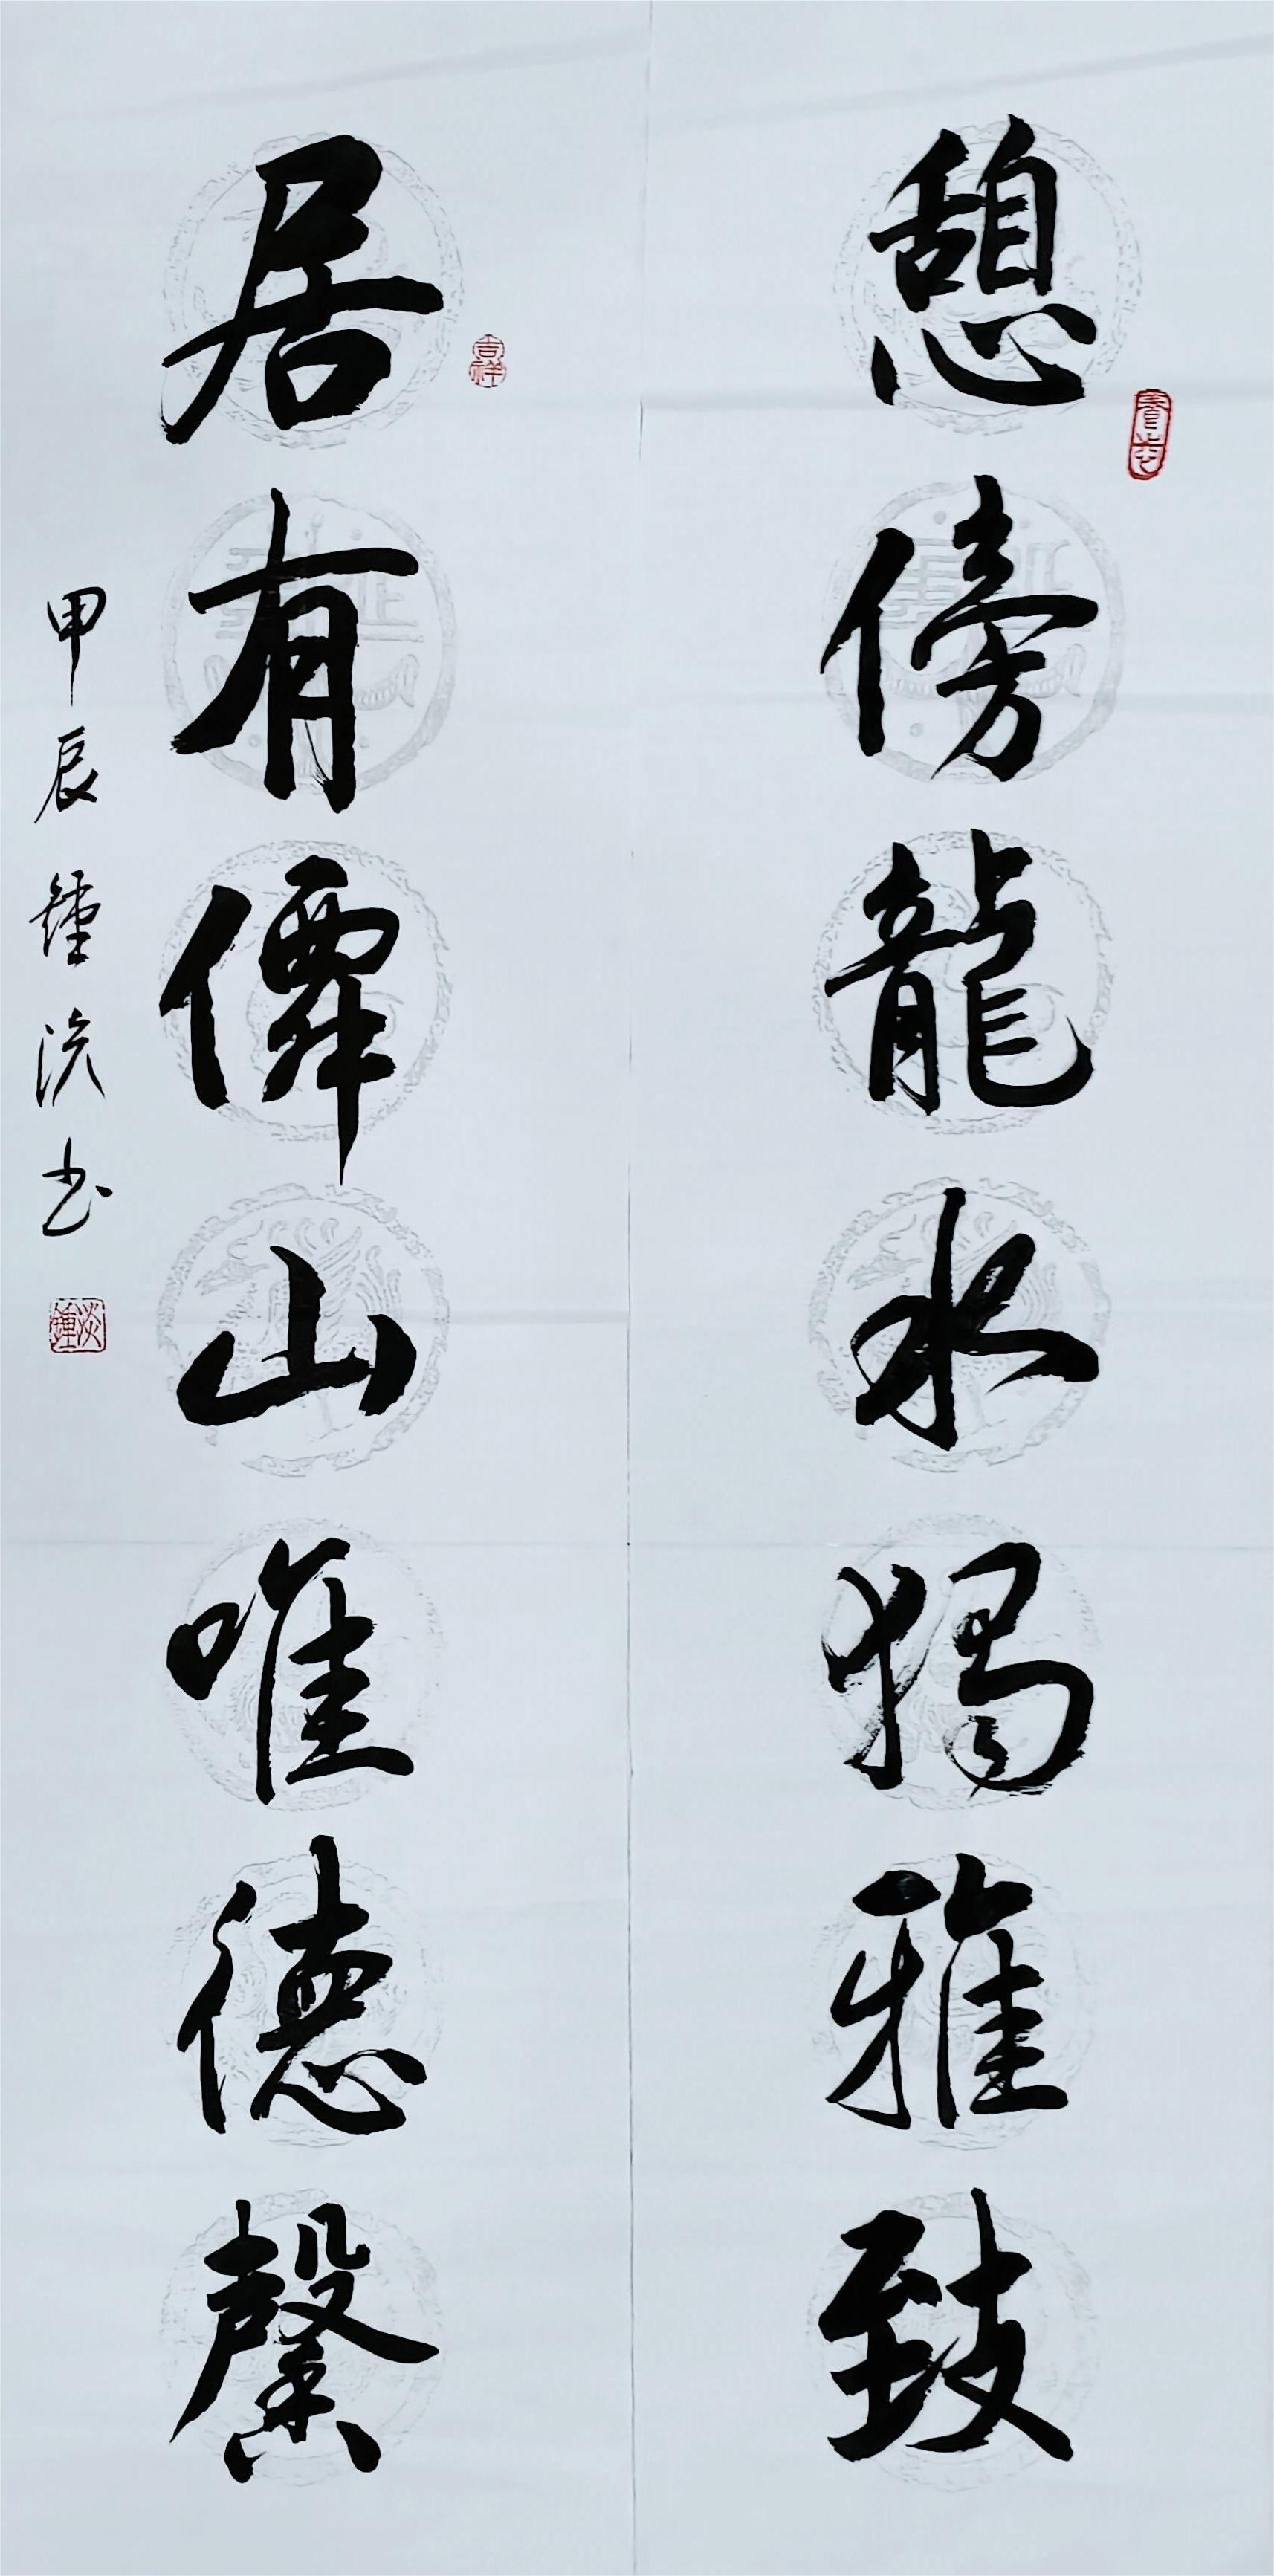 憩傍龍水獨雅致
居有僊山唯德馨
甲辰鍾淡书
吉祥